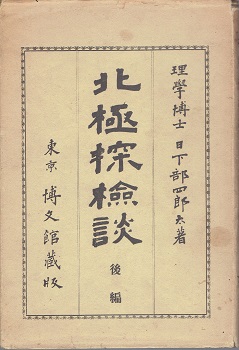 理學博士 日下部四郎太著
北極探檢談
後編
東京 博文館藏版